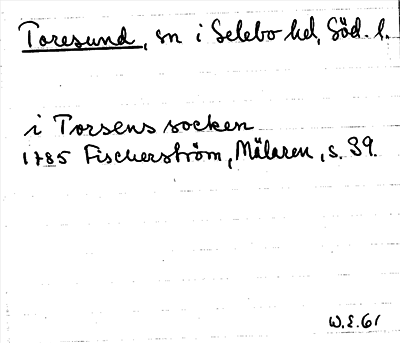 Toresund, sn i Selebo hd, Söd. l.
i Torsens socken
1785 Fischerström, Mälaren, s. 39.
W.E.61